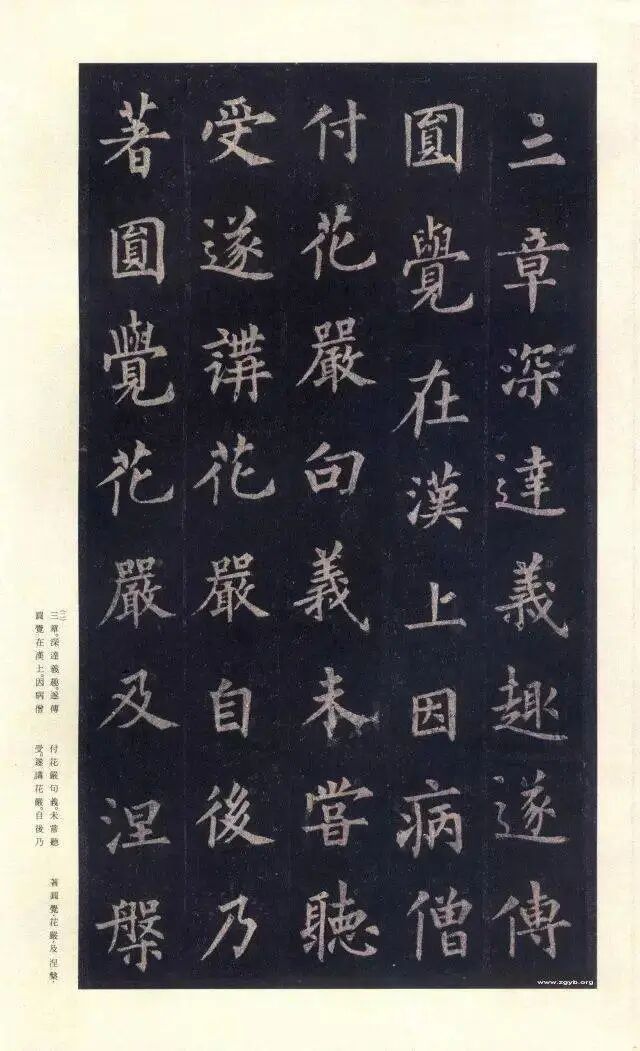 三章深達義趣遂傳
圓覺在漢上因病僧
付花嚴句義未甞聽
受遂講花嚴自後乃
著圓覺花嚴及涅槃
(二)
三章。深達義趣。遂傳
圓覺在漢上。因病僧
付花嚴句義。未嘗聽
受。遂講花嚴。自後乃
著圓覺、花嚴、及涅槃、
www.zgyb.org